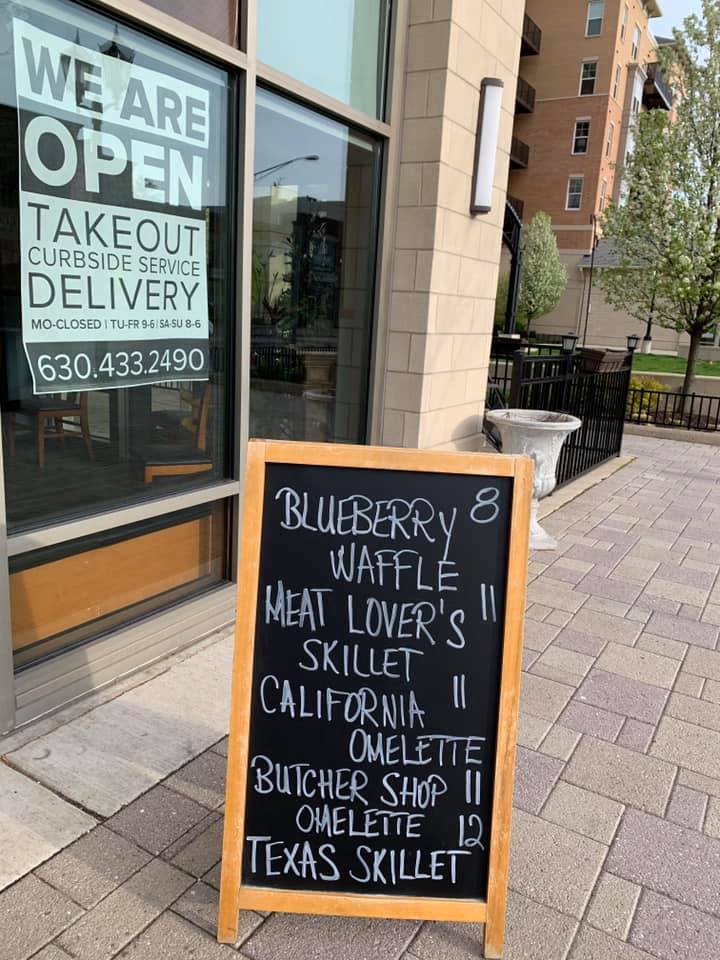 WE ARE
OPEN
TAKEOUT
CURBSIDE SERVICE
DELIVERY
MO-CLOSED | TU-FR 9-6 | SA-SU 8-6
630.433.2490
BLUEBERRY 8
WAFFLE
MEAT LOVER'S 11
SKILLET
CALIFORNIA 11
OMELETTE
BUTCHER SHOP 11
OMELETTE 12
TEXAS SKILLET